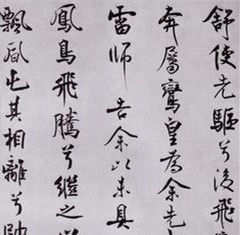 舒使先驅兮後飛
奔屬鸞皇為余先
雷師告余以未具
鳳鳥飛騰兮繼之以
飄風屯其相離兮帥